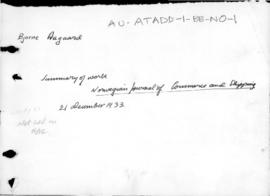 AU-ATADD-1-BE-NO-1
Bjarne Aagaard
Summary of work
Norwegian Journal of Commerce and Shipping
21 December 1933
Not sed on